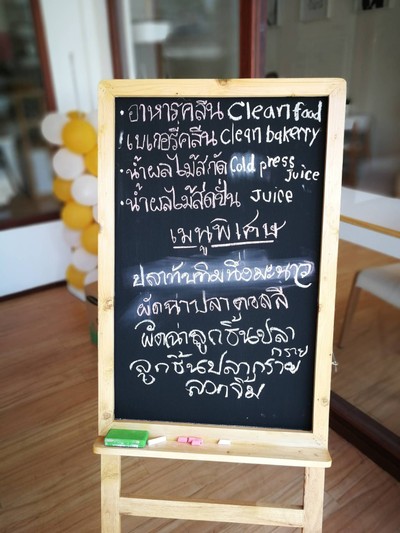 • อาหารคลีน Clean food
• เบเกอรี่คลีน clean bakerry
• น้ำผลไม้สกัด Cold press Juice
• น้ำผลไม้สดปั่น Juice
เมนูพิเศษ
ปลาทับทิมนึ่งมะนาว
ผัดฉ่าปลาดอลลี่
ผัดฉ่าลูกชิ้นปลากราย
ลูกชิ้นปลากราย
ลวกจิ้ม